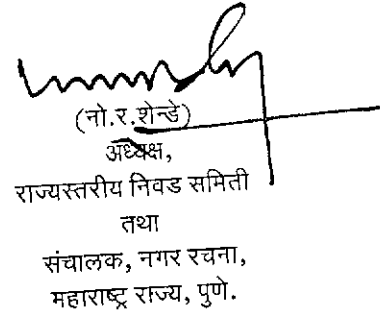 (नो.र.शेन्डे)
अध्यक्ष,
राज्यस्तरीय निवड समिती
तथा
संचालक, नगर रचना,
महाराष्ट्र राज्य, पुणे.